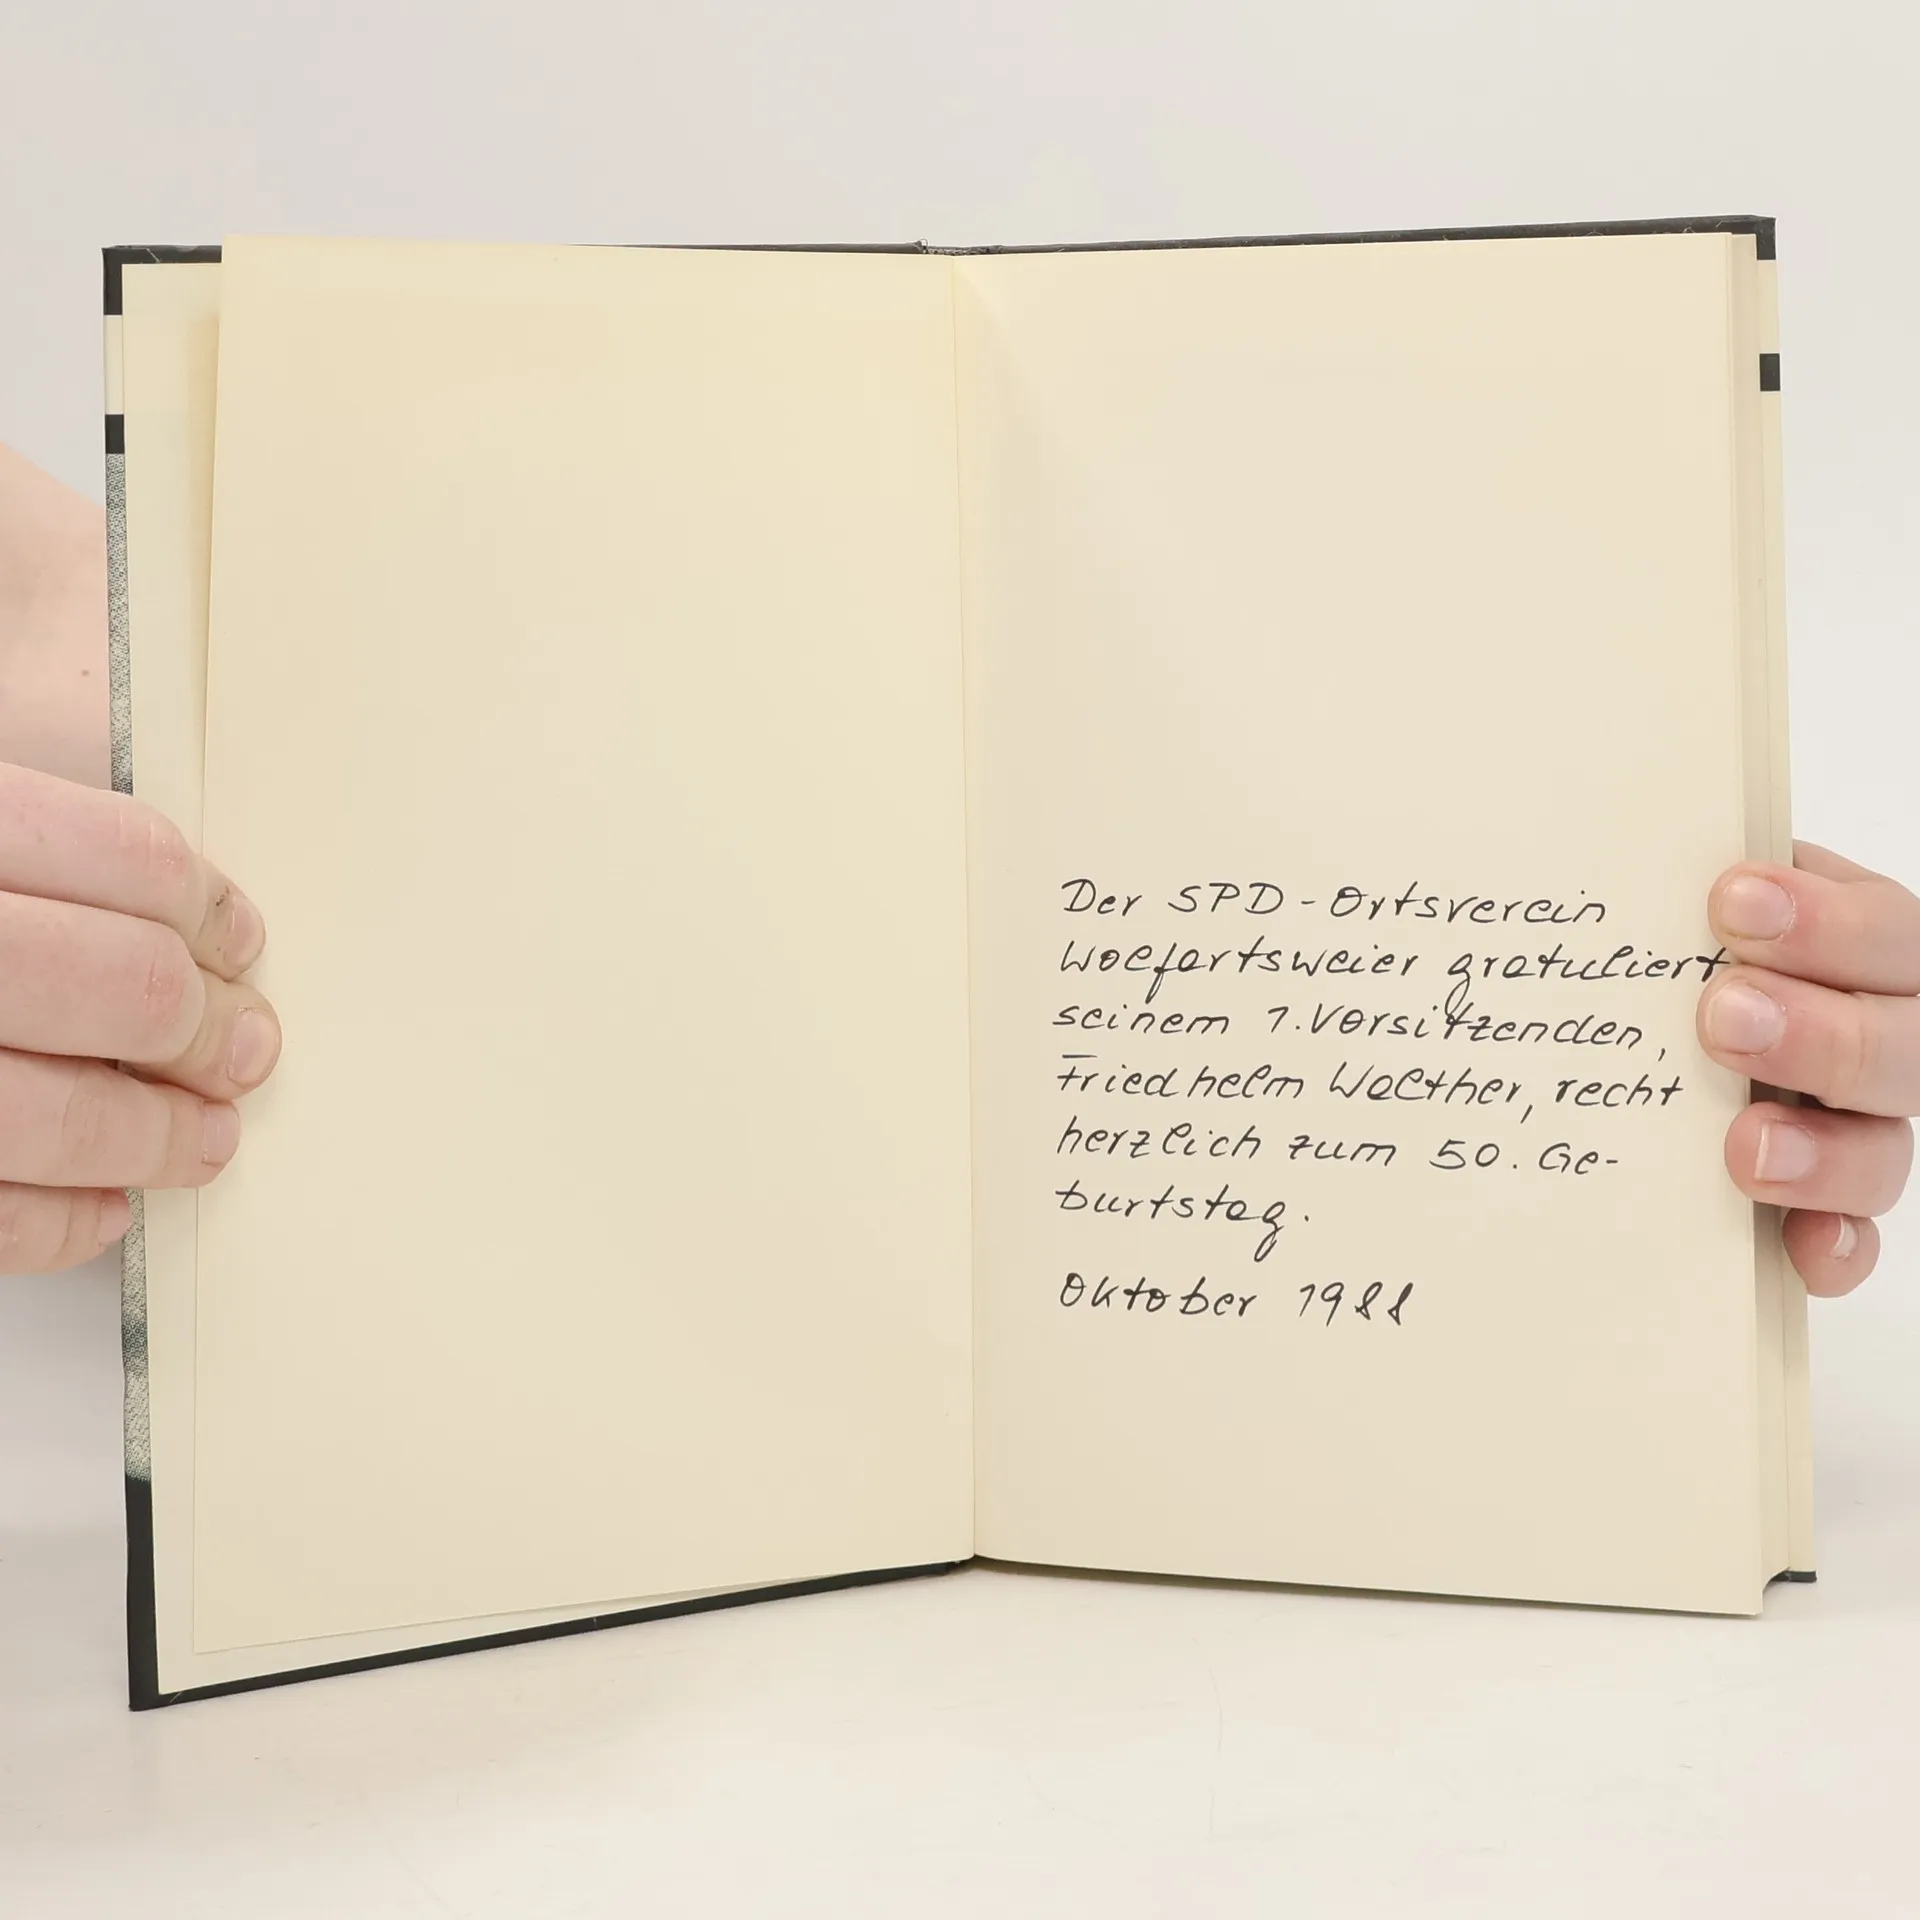 Der SPD-Ortsverein
Wolfartsweier gratuliert
seinem 1. Vorsitzenden,
Friedhelm Walther, recht
herzlich zum 50. Ge-
burtstag.
Oktober 1988